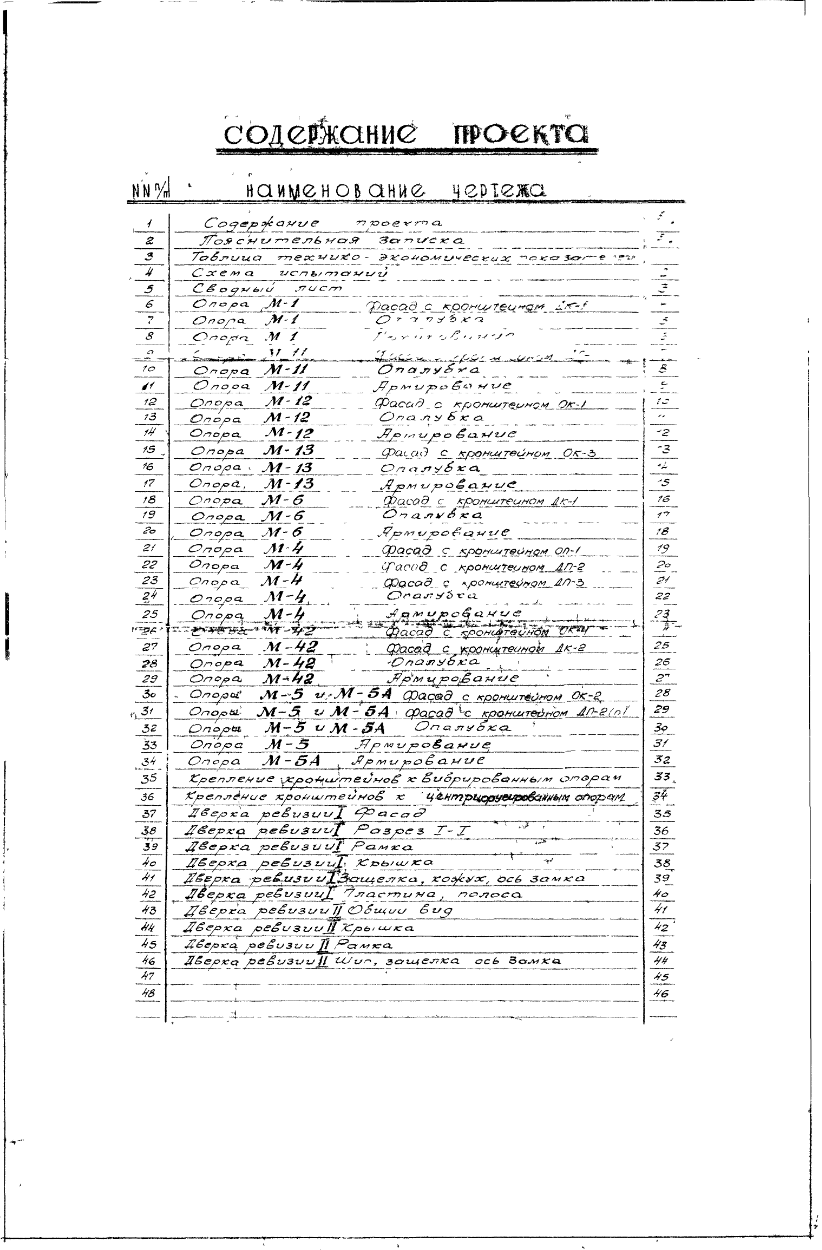 СОДЕРЖАНИЕ ПРОЕКТА
NN п/п НАИМЕНОВАНИЕ ЧЕРТЕЖА
1 Содержание проекта
2 Пояснительная записка
3 Таблица технико-экономических
4 Схема испытаний
5 Сводный лист
6 Опора М-1 Фасад с кронштейном ДК-1
7 Опора М-1 Опалубка
8 Опора М 1
9 М 11
10 Опора М-11 Опалубка 8
11 Опора М-11 Армирование
12 Опора М-12 Фасад с кронштейном ОК-1
13 Опора М-12 Опалубка
14 Опора М-12 Армирование
15 Опора М-13 Фасад с кронштейном ОК-3
16 Опора М-13 Опалубка
17 Опора М-13 Армирование
18 Опора М-6 Фасад с кронштейном ДК-1 16
19 Опора М-6 Опалубка 17
20 Опора М-6 Армирование 18
21 Опора М-4 Фасад с кронштейном ОП-1 19
22 Опора М-4 Фасад с кронштейном ДП-2 20
23 Опора М-4 Фасад с кронштейном ДП-3 21
24 Опора М-4 Опалубка 22
25 Опора М-4 Армирование 23
26 М-42 Фасад с кронштейном
27 Опора М-42 Фасад с кронштейном ДК-2 25
28 Опора М-42 Опалубка 26
29 Опора М-42 Армирование 27
30 Опоры М-5 и М-5А Фасад с кронштейном ОК-2 28
31 Опоры М-5 и М-5А Фасад с кронштейном ДП-2(п) 29
32 Опоры М-5 и М-5А Опалубка 30
33 Опора М-5 Армирование 31
34 Опора М-5А Армирование 32
35 Крепление кронштейнов к вибрированным опорам 33
36 Крепление кронштейнов к опорам 34
37 Дверка ревизии I Фасад 35
38 Дверка ревизии I Разрез I-I 36
39 Дверка ревизии I Рамка 37
40 Дверка ревизии I Крышка 38
41 Дверка ревизии I Защелка, кожух, ось замка 39
42 Дверка ревизии I Пластина, полоса 40
43 Дверка ревизии II Общий вид 41
44 Дверка ревизии II Крышка 42
45 Дверка ревизии II Рамка 43
46 Дверка ревизии II Шип, защелка ось замка 44
47 45
48 46